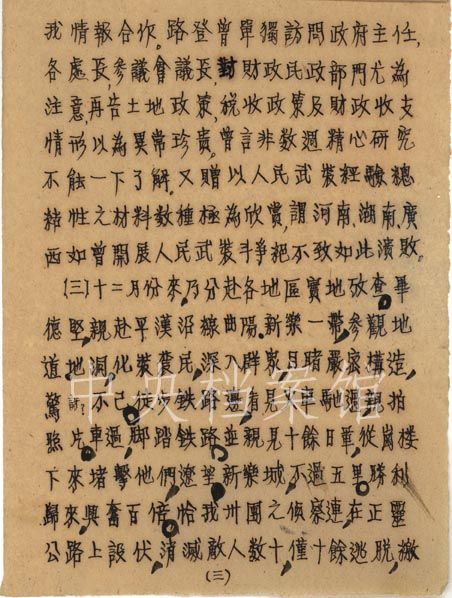 我情報合作。路登曾單獨訪問政府主任，
各處長，參議會議長，對財政民政部門尤為
注意，再告土地政策，稅收政策及財政收支
情形以為異常珍貴。曾言非數週精心研究
不能一下了解。又贈以人民武裝經驗總
結性之材料數種極為欣賞，謂河南、湖南、廣
西如曾開展人民武裝斗爭絕不致如此潰敗。
(三)十二月份來，乃分赴各地區實地攷查畢
德堅，親赴平漢沿線曲陽、新樂一帶，參觀地
道地洞。化裝農民，深入群衆目睹嚴密構造，
驚訝不已從
鉄路邊看見火車馬地邊親拍
照片車過，脚踏鉄路並親見十餘日華，從崗楼
下來堵擊他們遼望新樂城不過五里勝利
歸來，興奮百倍恰我卅團之偵察連在正靈
公路上設伏消滅敵人数十僅十餘逃脱，撤
(三)
中央档案馆